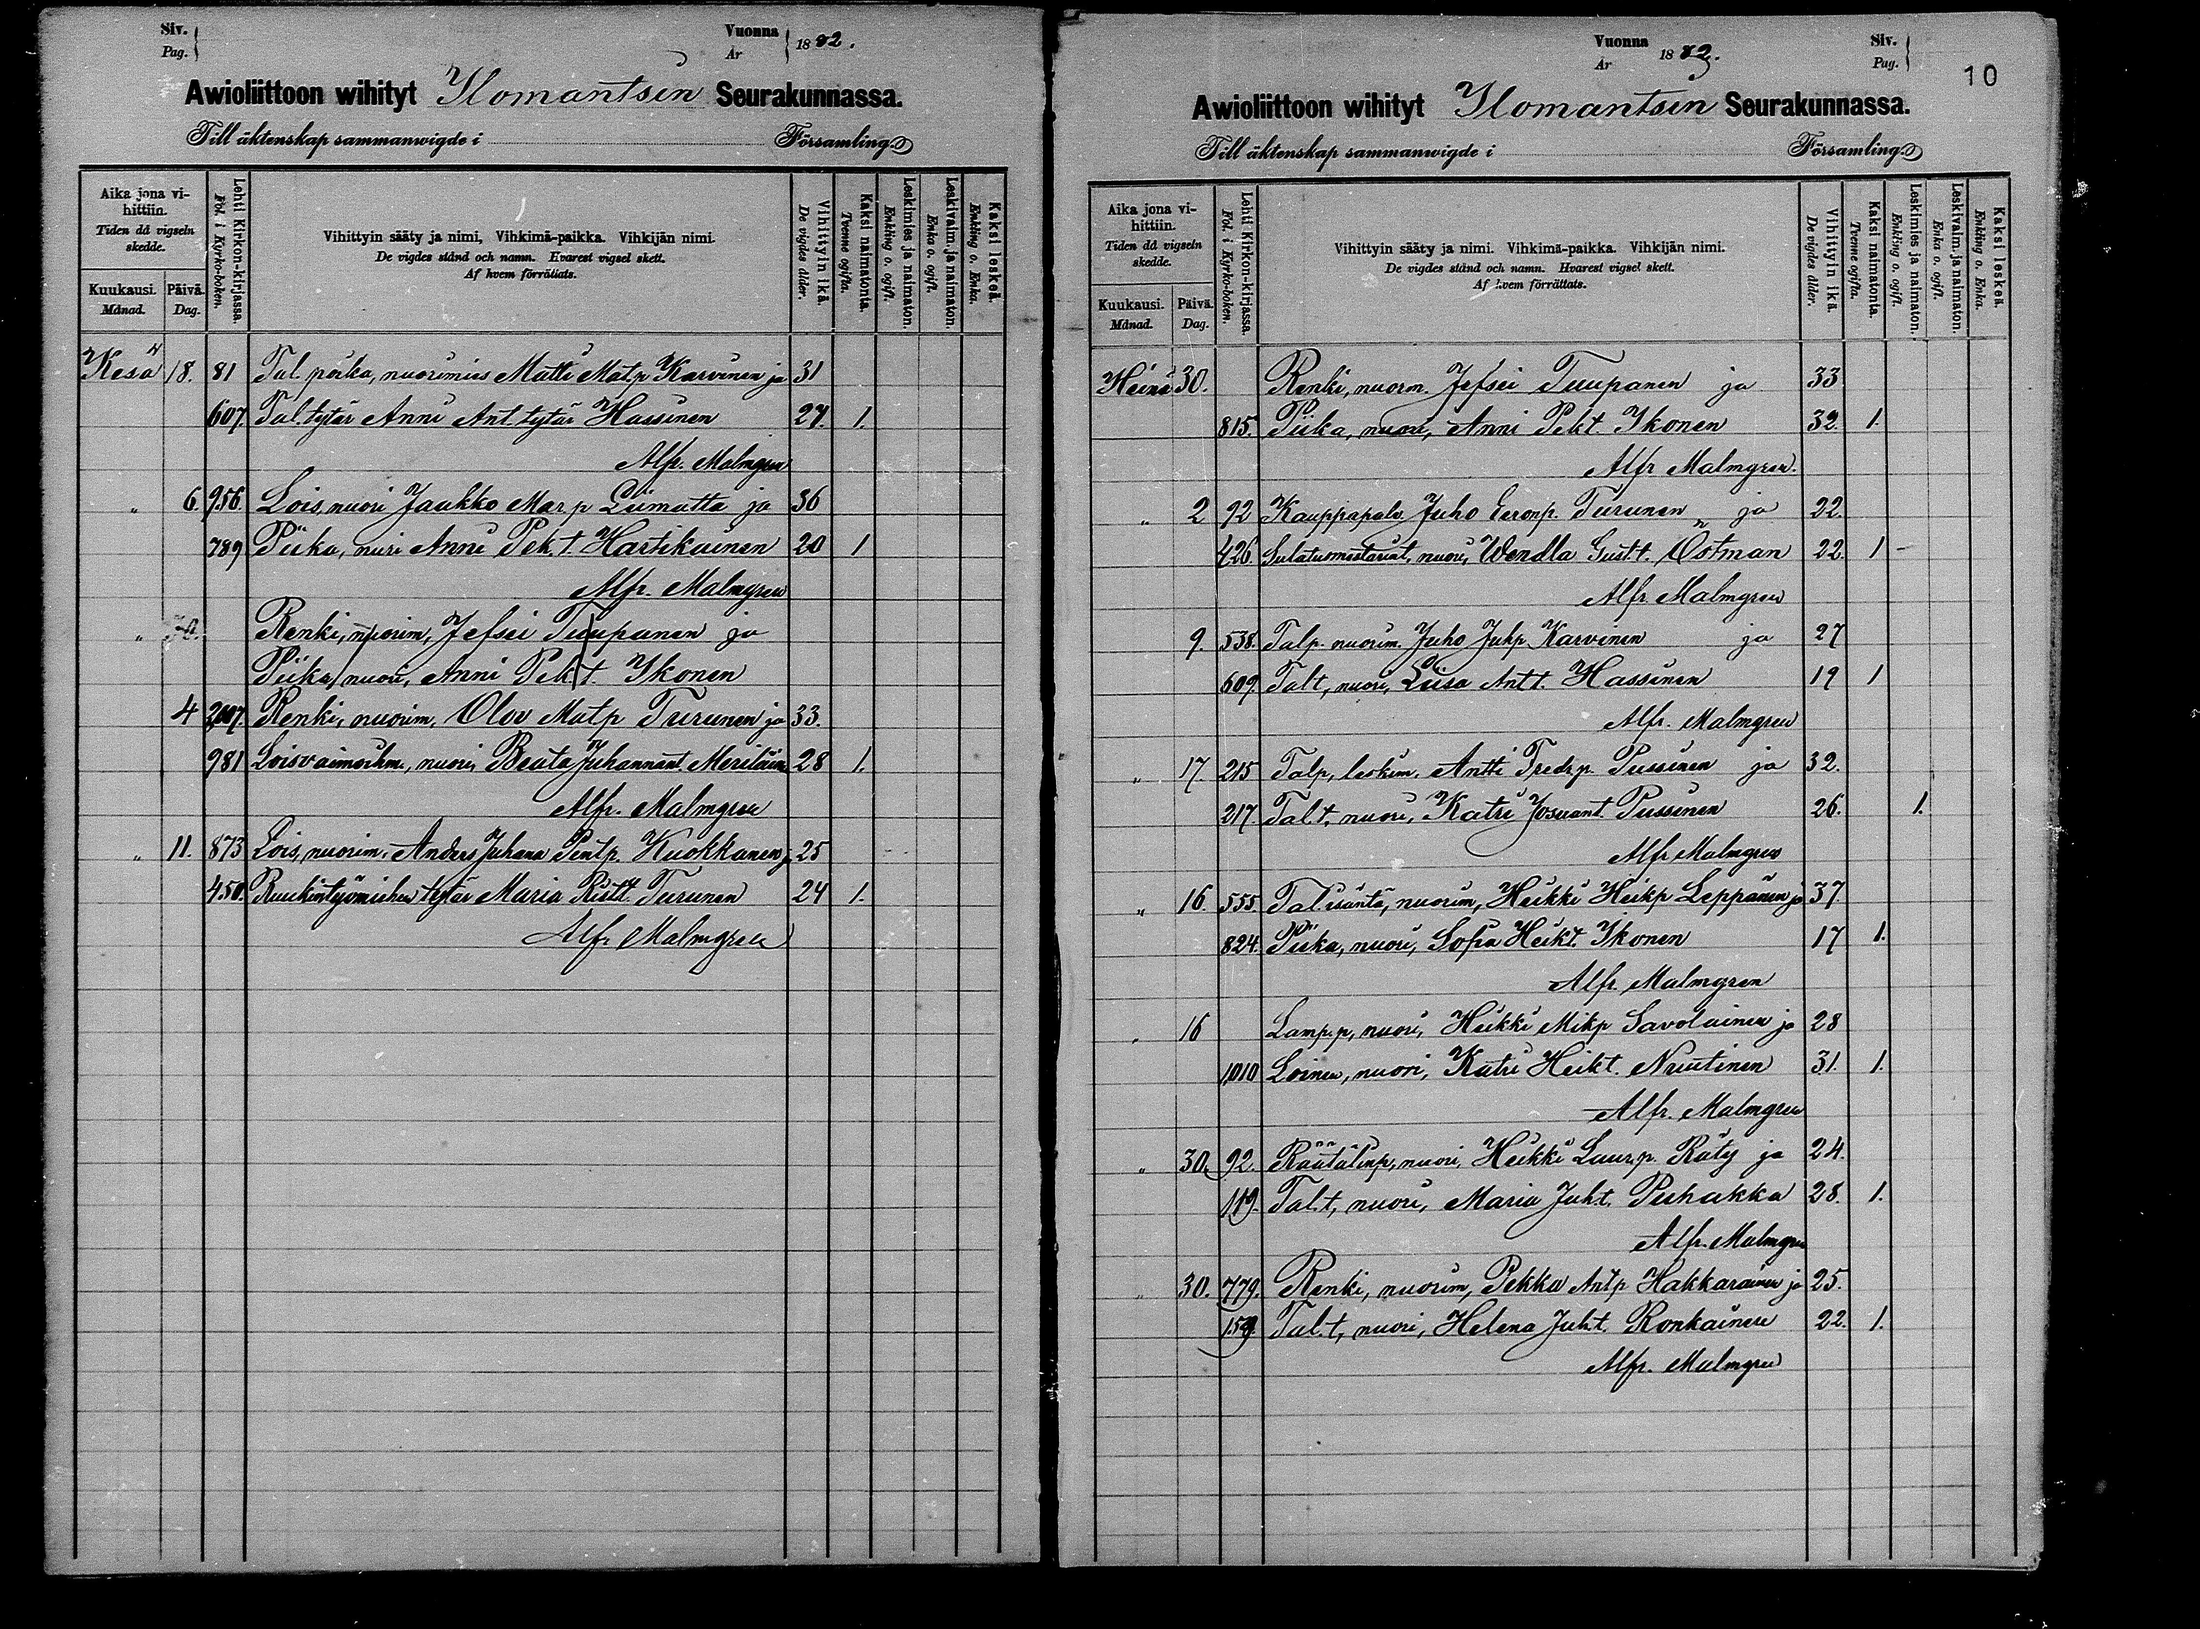 Siv.
Pag.
Vuonna
År
1882.
Awioliittoon wihityt Ilomantsin Seurakunnassa.
Till äktenskap sammanwigde i Församling.
Aika jona vihittiin.
Tiden då vigseln skedde.
Kuukausi.
Månad.
Päivä.
Dag.
Lehti Kirkon-kirjassa.
Fol. i Kyrko-boken.
Vihittyin sääty ja nimi, Vihkimä-paikka. Vihkijän nimi.
De vigdes stånd och namn. Hvarest vigsel skett.
Af hvem förrättats.
Vihittyin ikä.
De vigdes ålder.
Kaksi naimatonta.
Tvenne ogifta.
Leskimies ja naimaton.
Enkling o. ogift.
Leskivaim. ja naimaton.
Enka o. ogift.
Kaksi leskeä.
Enkling o. Enka.
Kesä 18. 81 Tal. poika, nuorimies Matti Mat.p Karvinen ja 31
607. Tal. tytär Anni Ant. tytär Hassinen 27. 1.
Alfr. Malmgren
" 6. 956. Lois, nuori Jaakko Mar p Liimatta ja 36
789 Piika, nuri Anni Pek.t. Hartikainen 20 1
Alfr. Malmgren
" 30. Renki, nuorim, Jefsei Tuupanen ja
Piika nuori, Anni Pekt. Ikonen
4 2,007. Renki, nuorim, Olov Matp Turunen ja 33.
981 Loisvaimoihm., nuori, Beata Juhannant. Meriläin 28 1.
Alfr. Malmgren
" 11. 873 Lois, nuorim. Anders Juhana Pentp. Kuokkanen j 25
450. Ruukintyömiehen tytär Maria Ristt. Turunen 24 1.
Alfr Malmgren
Vuonna
År
1882.
Siv.
Pag.
10
Awioliittoon wihityt Ilomantsin Seurakunnassa.
Till äktenskap sammanwigde i Församling.
Aika jona vihittiin.
Tiden då vigseln skedde.
Kuukausi.
Månad.
Päivä.
Dag.
Lehti Kirkon-kirjassa.
Fol. i Kyrko-boken.
Vihittyin sääty ja nimi. Vihkimä-paikka. Vihkijän nimi.
De vigdes stånd och namn. Hvarest vigsel skett.
Af hvem förrättats.
Vihittyin ikä.
De vigdes ålder.
Kaksi naimatonta.
Tvenne ogifta.
Leskimies ja naimaton.
Enkling o. ogift.
Leskivaim. ja naimaton.
Enka o. ogift.
Kaksi leskeä.
Enkling o. Enka.
Heinä 30. Renki, nuorm. Jefsei Tuupanen ja 33
815. Piika, nuori, Anni Pekt. Ikonen 32. 1.
Alfr Malmgren.
" 2 92 Kauppapalv. Juho Eeronp. Turunen ja 22.
426. nuori, Wendla Gust.t. Östman 22. 1
Alfr. Malmgren
9. 538. Talp. nuorim. Juho Juhp Karvinen ja 27
609. Talt, nuori, Liisa Antt. Hassinen 19 1
Alfr. Malmgren
" 17. 215 Talp, leskim. Antti Fredr.p. Pussinen ja 32.
217. Tal.t. nuori, Katri Josuant. Pussinen 26. 1.
Alfr Malmgren
" 16. 555. Tal. isäntä, nuorim, Heikki Heikp Leppänen ja 37.
824. Piika, nuori, Sofia Heikt. Ikonen 17 1.
Alfr. Malmgren
" 16 Lamp.p, nuori, Heikki Mikp Savolainen ja 28
1,010 Loinen, nuori, Katri Heikt. Nuutinen 31. 1.
Alfr. Malmgren
" 30. 92. Räätälinp, nuori, Heikki Laur.p. Räty ja 24.
119. Tal.t, nuori, Maria Juht. Puhakka 28. 1.
Alfr. Malmgren
" 30. 779. Renki, nuorim, Pekka Antp Hakkarainen ja 25.
159. Tal.t, nuori, Helena Juh.t. Ronkainen 22. 1.
Alfr. Malmgren